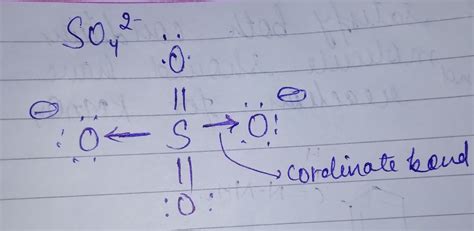 SO₄²⁻
O
⊖ ⊖
O ← S → O
cordinate bond
O